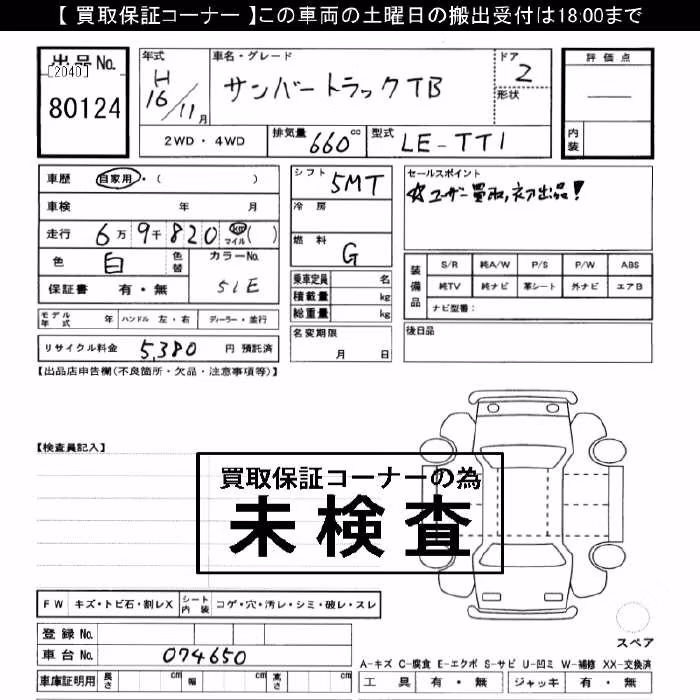 【 買取保証コーナー 】この車両の土曜日の搬出受付は18:00まで
出品No.
[2040]
80124
年式
H
16/11月
車名・グレード
サンバートラックTB
ドア
2
形状
評価点
内装
2WD・4WD
排気量 660cc
型式 LE-TT1
車歴 自家用・( )
車検 年 月
走行 6万9千820 km マイル ( )
色 白 色替
カラーNo.
51E
保証書 有・無
モデル年式 年 ハンドル 左・右 ディーラー・並行
リサイクル料金 5,380 円 預託済
シフト 5MT
冷房
燃料 G
乗車定員 名
積載量 kg
総重量 kg
名変期限
月 日
セールスポイント
☆ユーザー買取、初出品!
装備品
S/R 純A/W P/S P/W ABS
純TV 純ナビ 革シート 外ナビ エアB
ナビ型番:
後日品
【出品店申告欄(不良箇所・欠品・注意事項等)】
【検査員記入】
買取保証コーナーの為
未検査
FW キズ・トビ石・割レX シート内装 コゲ・穴・汚レ・シミ・破レ・スレ
登録No.
車台No. 074650
車庫証明用 長さ cm 幅 cm 高さ cm
スペア
A-キズ C-腐食 E-エクボ S-サビ U-凹ミ W-補修 XX-交換済
工具 有・無 ジャッキ 有・無